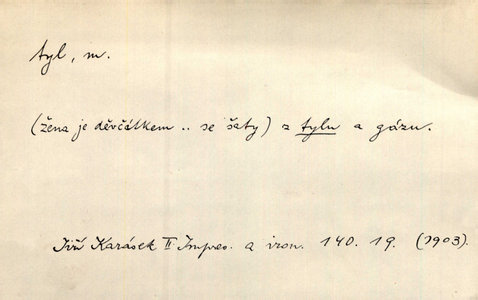 tyl, m.
(žena je děvčátkem .. se šaty) z tylu a gázu.
Jiří Karásek II Impres. a iron. 140. 19. (1903).